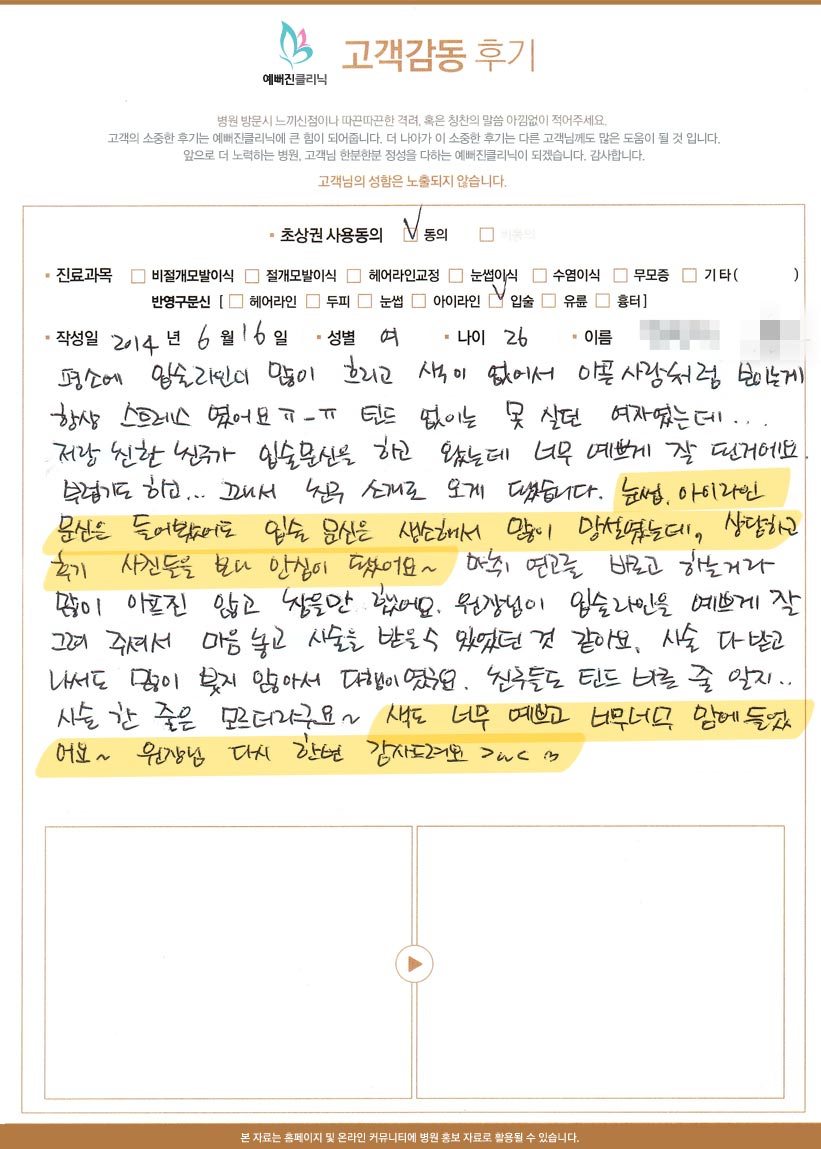 예뻐진클리닉
고객감동 후기
병원 방문시 느끼신점이나 따끈따끈한 격려, 혹은 칭찬의 말씀 아낌없이 적어주세요.
고객의 소중한 후기는 예뻐진클리닉에 큰 힘이 되어줍니다. 더 나아가 이 소중한 후기는 다른 고객님께도 많은 도움이 될 것 입니다.
앞으로 더 노력하는 병원, 고객님 한분한분 정성을 다하는 예뻐진클리닉이 되겠습니다. 감사합니다.
고객님의 성함은 노출되지 않습니다.
초상권 사용동의 동의 비동의
진료과목 비절개모발이식 절개모발이식 헤어라인교정 눈썹이식 수염이식 무모증 기 타 ( )
반영구문신 [ 헤어라인 두피 눈썹 아이라인 입술 유륜 흉터 ]
작성일 2014 년 6 월 16 일 성별 여 나이 26 이름
평소에 입술라인이 많이 흐리고 색이 없어서 아픈 사람처럼 보이는게
항상 스트레스 였어요 ㅠ-ㅠ 틴트 없이는 못 살던 여자였는데...
저랑 친한 친구가 입술문신을 하고 왔는데 너무 예쁘게 잘 된거에요.
부럽기도 하고... 그래서 친구 소개로 오게 됐습니다. 눈썹, 아이라인
문신은 들어봤어도 입술 문신은 생소해서 많이 망설였는데, 상담하고
후기 사진들을 보니 안심이 됐어요~ 마취 연고를 바르고 하는거라
많이 아프진 않고 참을만 했어요. 원장님이 입술라인을 예쁘게 잘
그려 주셔서 마음 놓고 시술을 받을수 있었던 것 같아요. 시술 다 받고
나서도 많이 붓지 않아서 다행이었구요. 친구들도 틴트 바른 줄 알지..
시술 한 줄은 모르더라구요~ 색도 너무 예쁘고 너무너무 맘에 들었
어요~ 원장님 다시 한번 감사드려요
본 자료는 홈페이지 및 온라인 커뮤니티에 병원 홍보 자료로 활용될 수 있습니다.